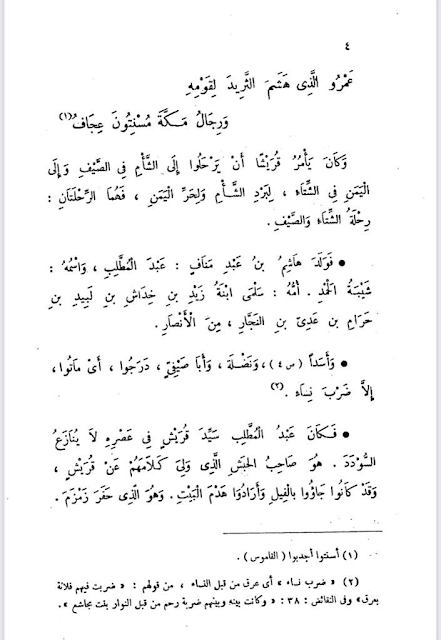 ٤
عَمْرُو الَّذِى هَشَمَ الثَّرِيدَ لِقَوْمِهِ
وَرِجَالُ مَكَّةَ مُسْنِتُونَ عِجَافُ (١)
وَكَانَ يَأْمُرُ قُرَيْشًا أَنْ يَرْحَلُوا إِلَى الشَّأْمِ فِى الصَّيْفِ وَإِلَى
الْيَمَنِ فِى الشِّتَاءِ ، لِبَرْدِ الشَّأْمِ وَلِحَرِّ الْيَمَنِ ، فَهُمَا الرِّحْلَتَانِ :
رِحْلَةُ الشِّتَاءِ وَالصَّيْفِ .
• فَوَلَدَ هَاشِمُ بنُ عَبْدِ مَنَافٍ : عَبْدَ الْمُطَّلِبِ ، وَاسْمُهُ :
شَيْبَةُ الْحَمْدِ . أُمُّهُ : سَلْمَى ابْنَةُ زَيْدِ بنِ خِدَاشِ بنِ لَبِيدِ بنِ
حَرَامِ بنِ عَدِىِّ بنِ النَّجَّارِ ، مِنَ الْأَنْصَارِ .
• وَأَسَداً (س ٤) ، وَنَضْلَةَ ، وَأَبَا صَيْفِىٍّ ، دَرَجُوا ، أَىْ مَاتُوا ،
إِلاَّ ضَرْبَ نِسَاء . (٢)
• فَكَانَ عَبْدُ الْمُطَّلِبِ سَيِّدَ قُرَيْشٍ فِى عَصْرِهِ لاَ يُنَازَعُ
السُّؤْدَدَ . هُوَ صَاحِبُ الْحَبَشِ الَّذِى وَلِىَ كَلاَمَهُمْ عَنْ قُرَيْشٍ ،
وَقَدْ كَانُوا جَاؤُوا بِالْفِيلِ وَأَرَادُوا هَدْمَ الْبَيْتِ . وَهُوَ الَّذِى حَفَرَ زَمْزَمَ .
(١) أسنتوا أجدبوا (القاموس) .
(٢) « ضرب نساء » أى عرق من قبل النساء ، من قولهم : « ضربت فيهم فلانة
بعرق» وفى النقائض : ٣٨ : « وكانت بينه وبينهم ضربة رحم من قبل النوار بنت مجاشع » .